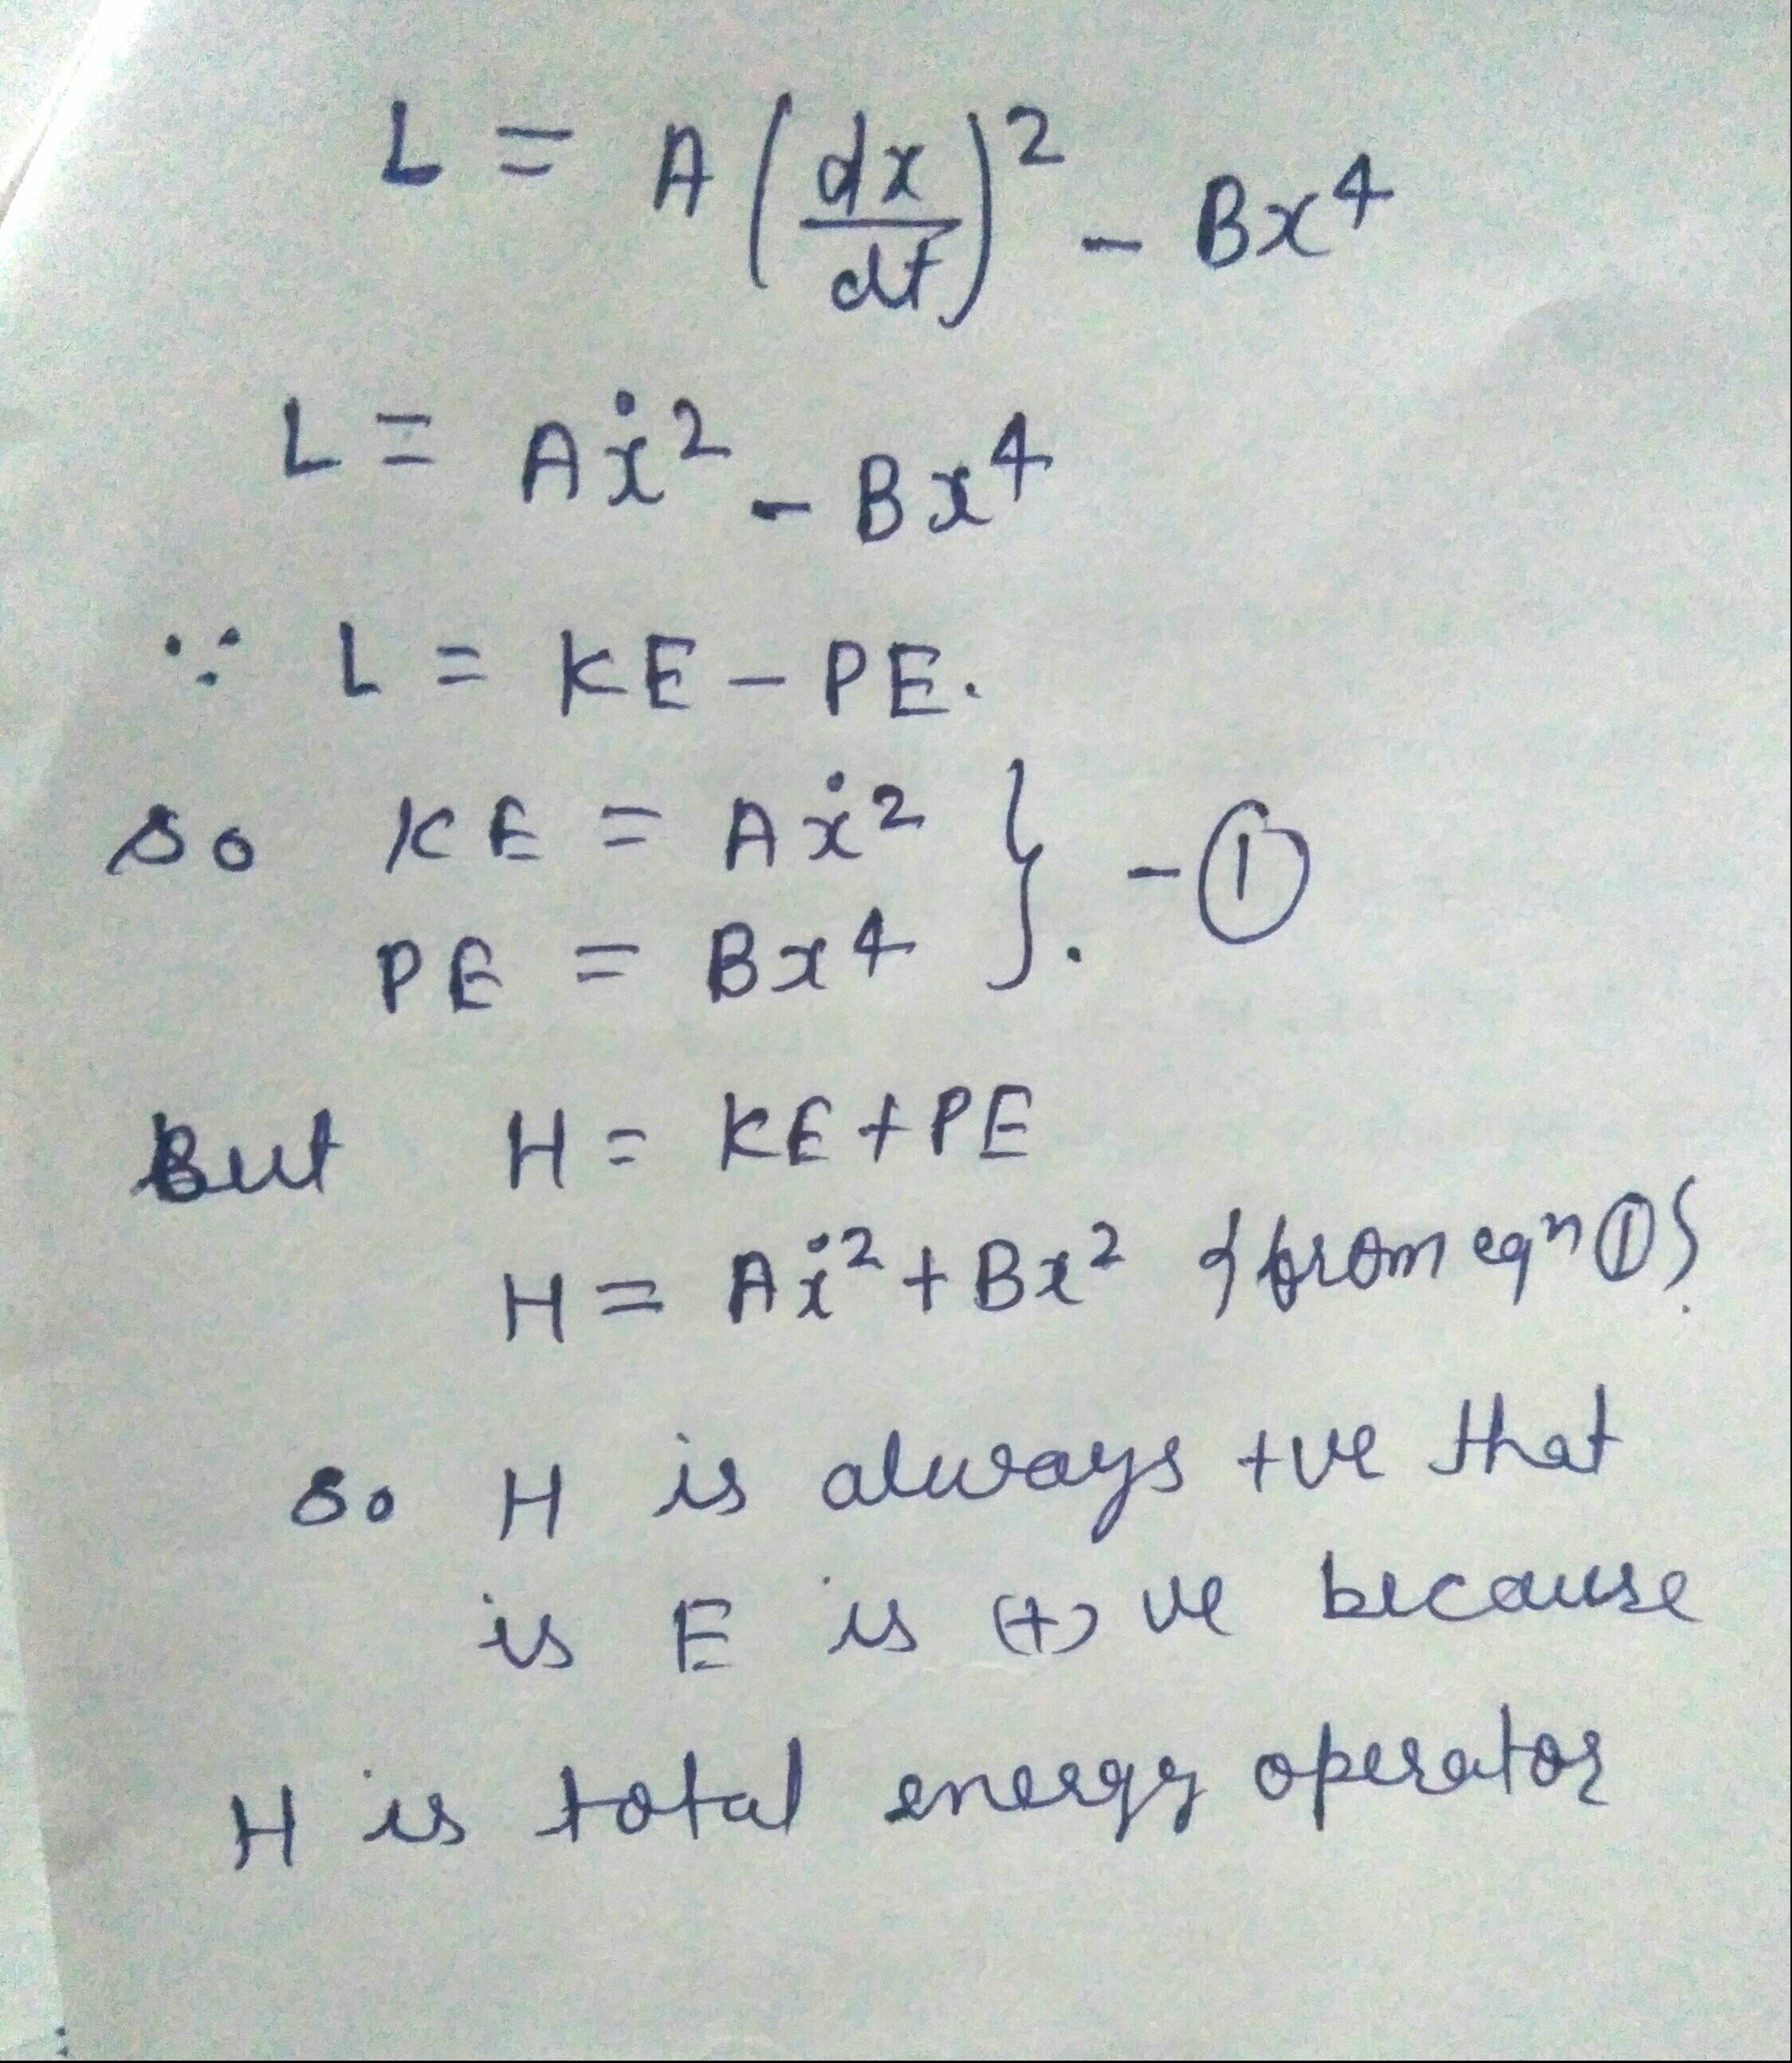 L = A (dx/dt)² - Bx⁴
L = Aẋ² - Bx⁴
∵ L = KE - PE.
so KE = Aẋ² } . - ①
PE = Bx⁴
But H = KE + PE
H = Aẋ² + Bx² {from eqⁿ ①}
so H is always +ve that
is E is (+) ve because
H is total energy operator